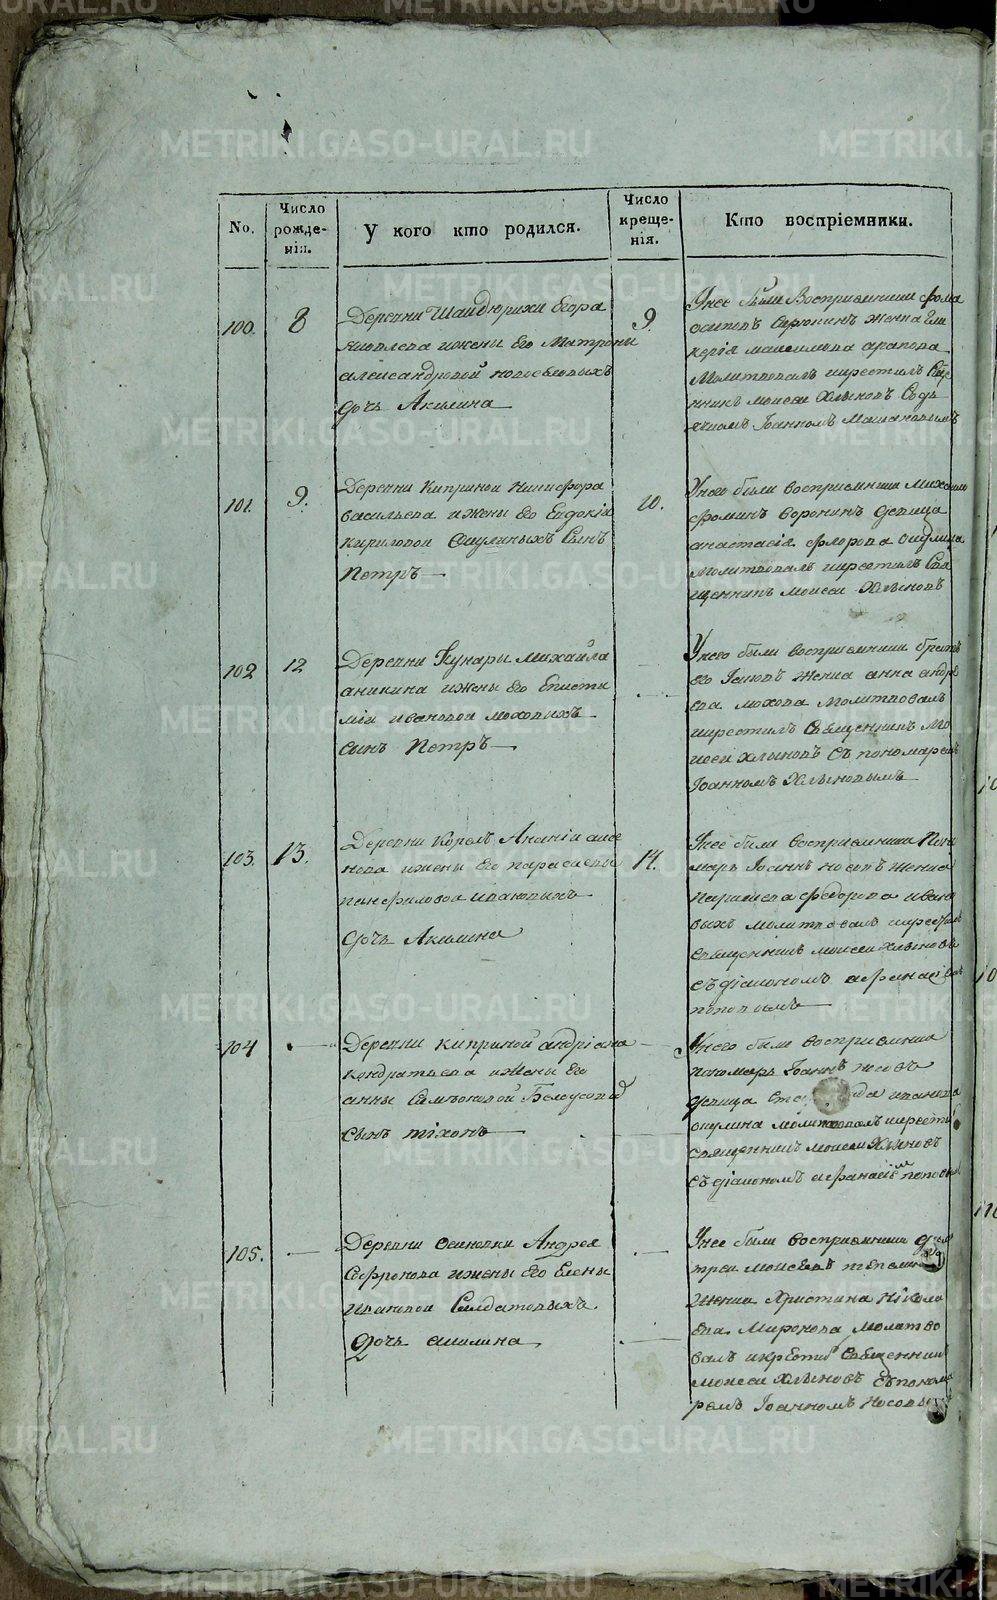 METRIKI.GASO-URAL.RU
No.
Число рожде-нія.
У кого кто родился.
Число креще-нія.
Кто воспріемники.
100.
8
Деревни Шайдюрихи Егора
яковлева ижены Его Матроны
александровой новоселовыхъ
дочь Акилина
9.
Унее были Восприемники фома
жена Гли
керіа максимова арапова
Молитвовалъ икрестилъ Свще
нникъ моисеи Хлыновъ Содъ
ячкомъ Іоанномъ
101.
9.
Деревни Киприной Никифора
васильева ижены Его Евдокіи
кириловой Окулиныхъ Сынъ
Петръ
10.
Унего были восприемники Михаило
фоминъ воронинъ девица
анастасіа флорова окулина
Молитвовалъ икрестилъ Свя
щенникъ моисеи Хлыновъ
102
12
Деревни Кунары Михайла
аникина ижены Его Еписти
міи ивановой моховыхъ
сынъ Петръ
Унего были восприемники братъ
его Іаковъ жена анна андре
ева мохова Молитвовалъ
икрестилъ Священникъ Мо
исеи хлыновъ Съ пономаремъ
Іоанномъ Хлыновымъ
103.
13.
Деревни Корелъ Ананіи семе
нова ижены Его парасковьи
панфиловой ивановыхъ
дочь Акилина
14.
Унее были восприемники Поно
марь Іоаннъ носовъ жена
Параскева федорова ивано
выхъ молитвовалъ икрестилъ
священникъ моисеи Хлыновъ
съ діакономъ афанасіемъ
поповымъ
104
Деревни киприной андріана
кондратьева ижены Его
анны Симеоновой Белоусовой
сынъ тіхонъ
Унего были восприемники
пономарь Іоаннъ носовъ
девица иванова
окулина молитвовалъ икрести
священникъ моисеи Хлыновъ
съ діакономъ афанасіемъ поповым
105.
Деревни осиновки Андрея
Софронова ижены Его Елены
ивановой Салдатовыхъ
дочь акилина
Унее были восприемники дми
треи моисеевъ
жена Христина Ніколае
ева Миронова Молитво
валъ икрестилъ Священникъ
моисеи Хлыновъ съ понома
ремъ Іоанномъ Носовым